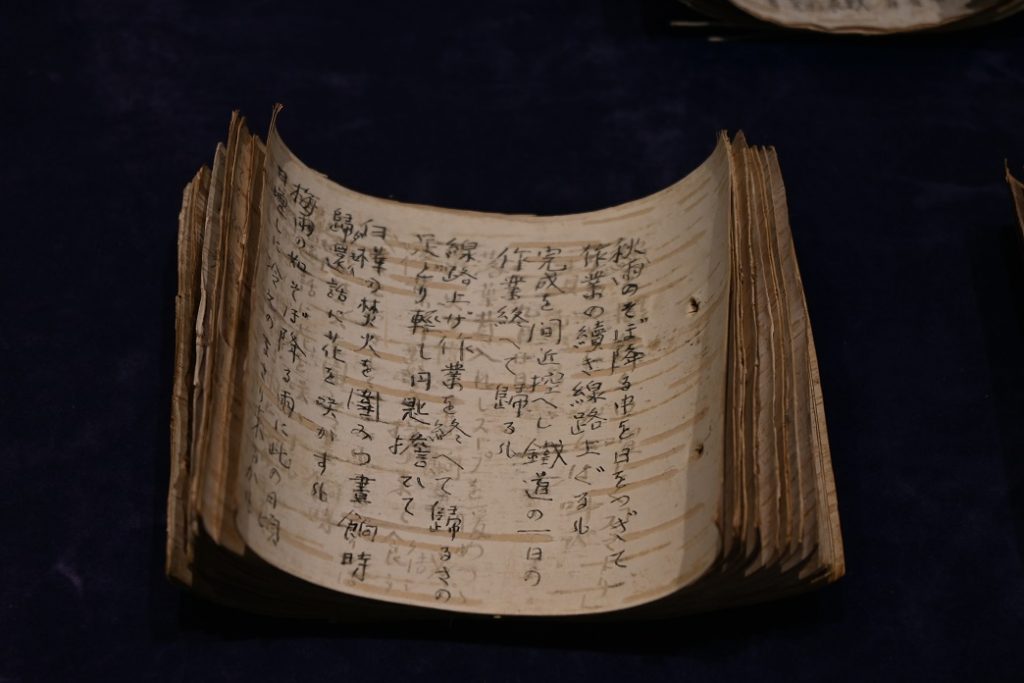 秋雨のそぼ降る中を日をつぎて
作業の續き線路上げる
完成を間近控へし鐵道の一日の
作業終へて歸る
線路上ゲ作業を終へて歸るさの
足どり軽し円匙擔ひて
白樺の焚火を圍みつ晝餉時
歸還話に花を咲かす
梅雨の如そぼ降る雨に此の日頃
日増しに冷えのまさり